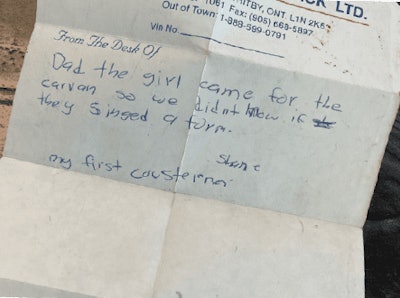 CK LTD.
WHITBY, ONT. L1N 2K5
1061 Fax: (905) 668-5897
Out of Town: 1-888-599-0791
Vin No.
From The Desk Of
Dad the girl came for the
carvan so we didnt know if
they singed a form.
Shane
my first cousterner